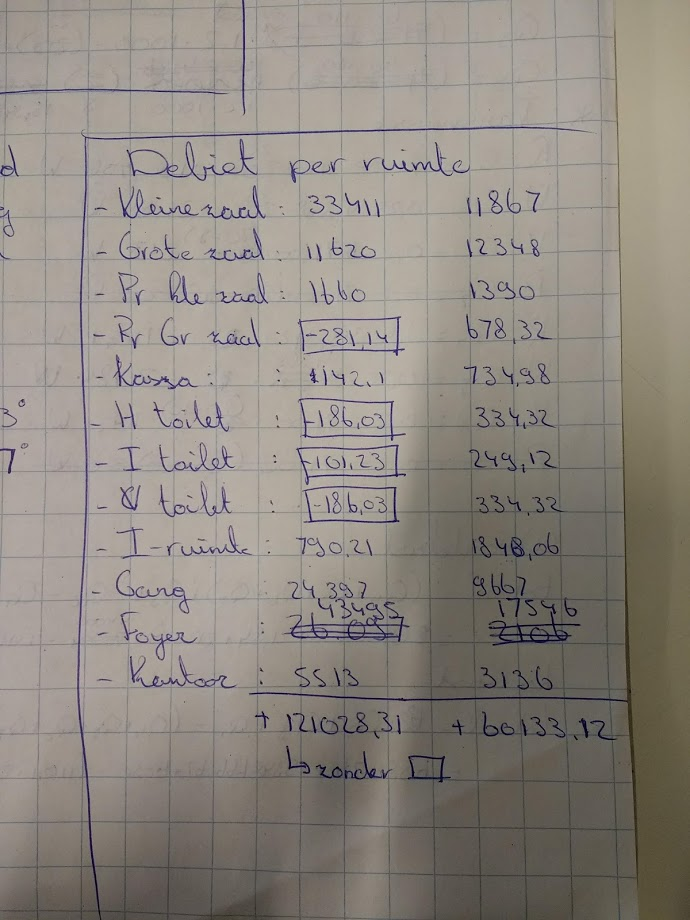 d
Debiet per ruimte
g
- Kleine zaal : 33411 11867
- Grote zaal : 11620 12348
- Pr kle zaal : 1660 1390
- Pr Gr zaal : -281,14 678,32
- Kassa : : 142,1 734,98
3°
- H toilet : -186,03 334,32
7°
- I toilet : -101,23 249,12
- V toilet : -186,03 334,32
- I-ruimte : 790,21 1848,06
- Gang : 24,397 9667
43495 17546
- Foyer : 2106
- Kantoor : 5513 3136
+ 121028,31 + 60133,12
↳ zonder □